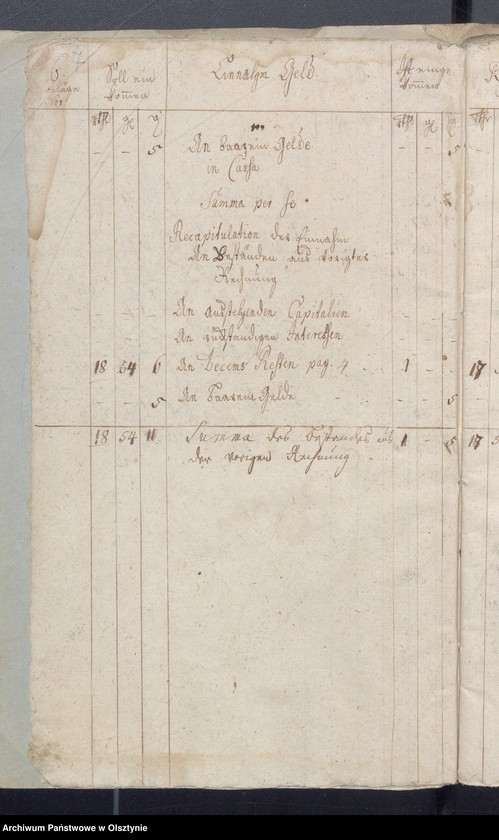 7
Soll ein
kommen
Einnahm Geld.
Ist einge
kommen
Rthl gl
Rthl gl
- - 5 An baarem Gelde - - 5
in Cassa.
Summa per se
Recapitulation der Einnahm
An Beständen aus voriger
Rechnung
- - - An ausstehenden Capitalien - - -
- - - An rückständigen Interessen - - -
18 54 6 An Decems Resten pag. 4 1 - - 17
- - 5 An baarem Gelde - - 5
18 54 11 Summa des bestandes aus 1 - 5 17
der vorigen Rechnung
Archiwum Państwowe w Olsztynie